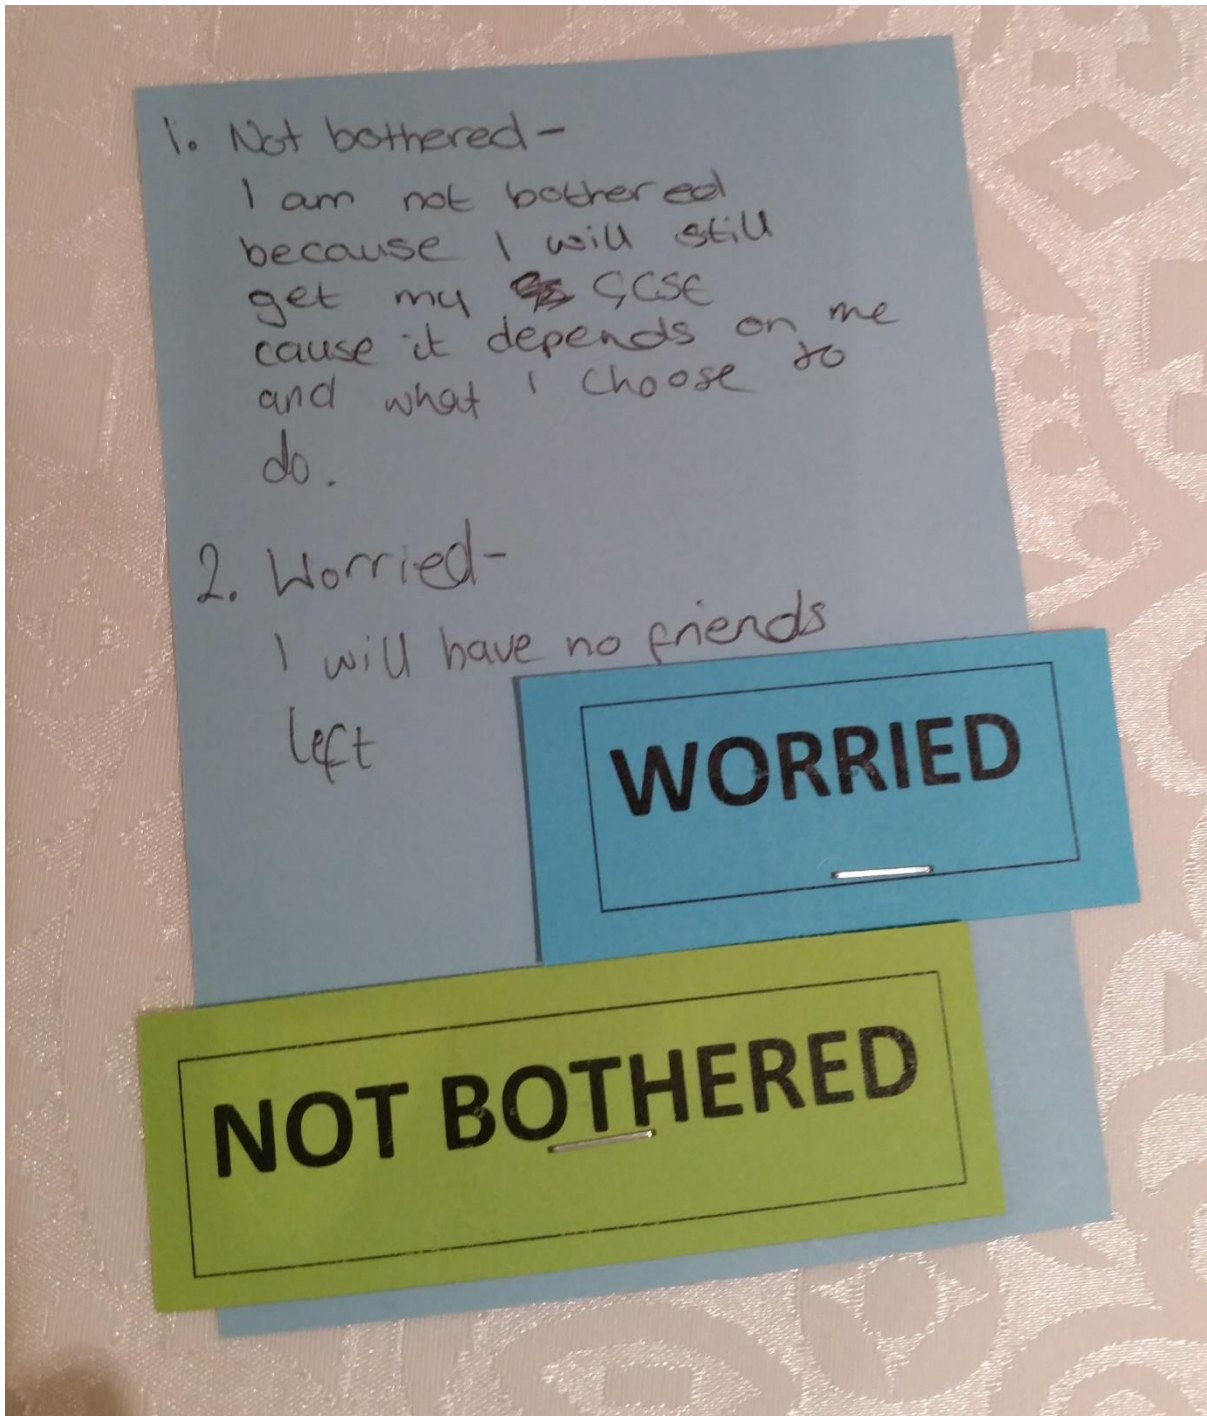 1. Not bothered-
I am not bothered
because I will still
get my GCSE
cause it depends on me
and what I choose to
do.
2. Worried-
I will have no friends
left
WORRIED
NOT BOTHERED